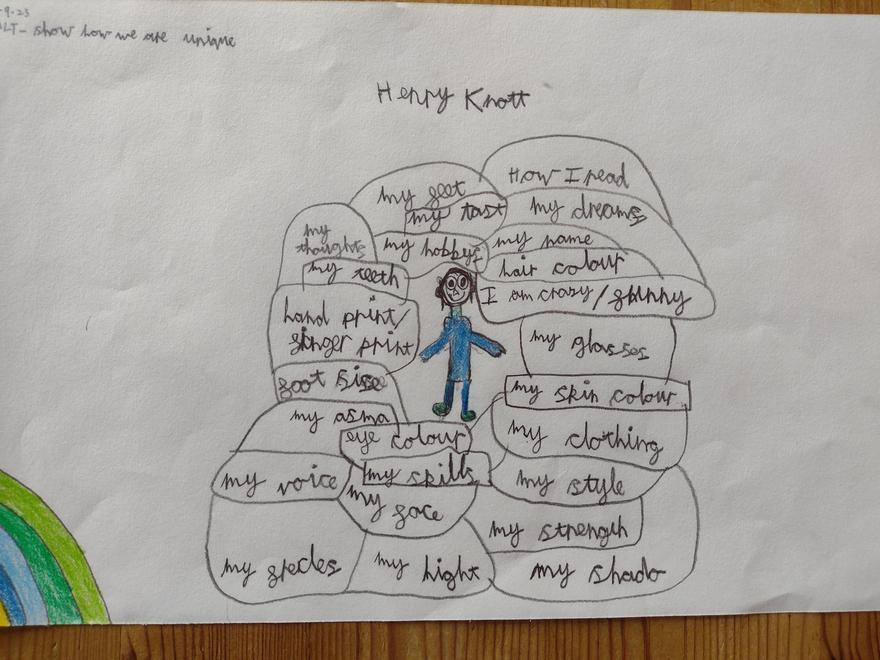 -9-23
LT- show how we are unique
Henry Knott
How I read
my feet
my tast
my dreams
my thoughts
my hobbys
my name
hair colour
my teeth
I am crazy/funny
hand print/
finger print
my glasses
foot sise
my skin colour
my asma
eye colour
my clothing
my voice
my skills
my style
my face
my strength
my frecles
my hight
my shado